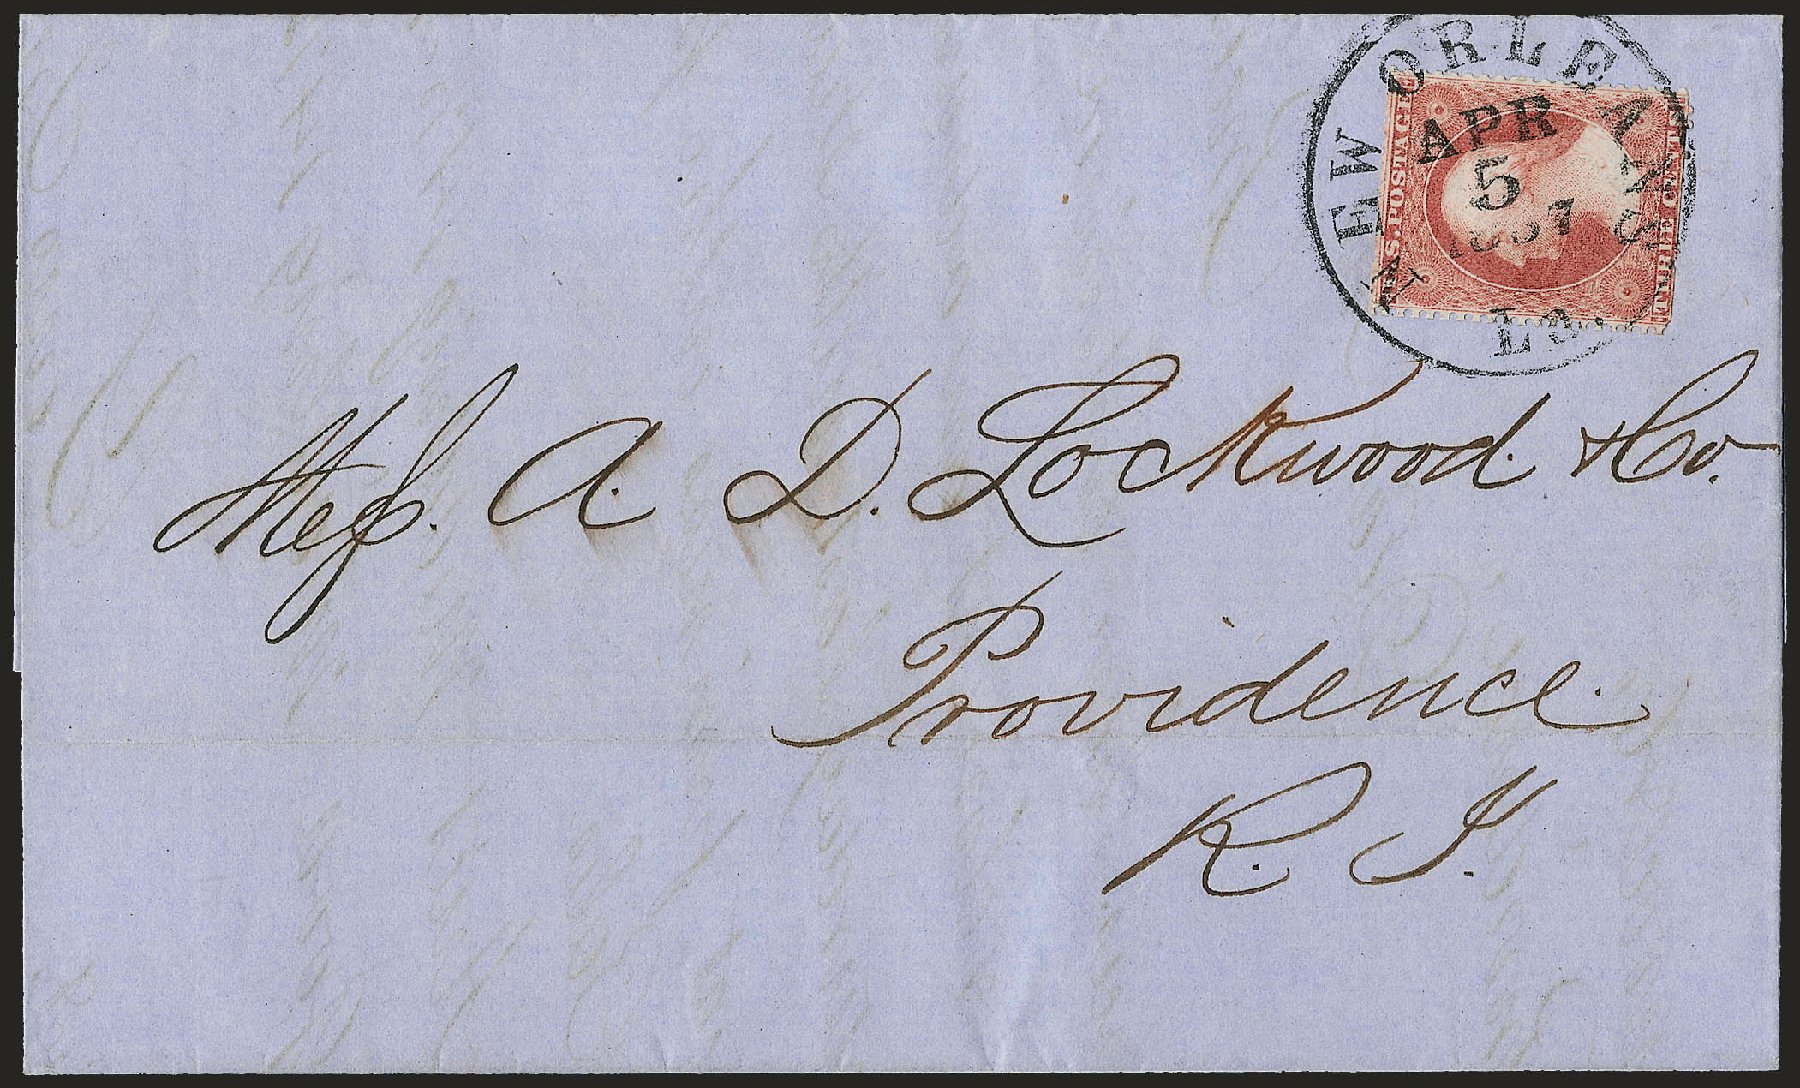 NEW ORLEANS
La.
APR
5
1857
U.S. POSTAGE
THREE CENTS
Mess. A. D. Lockwood. & Co.
Providence.
R. I.